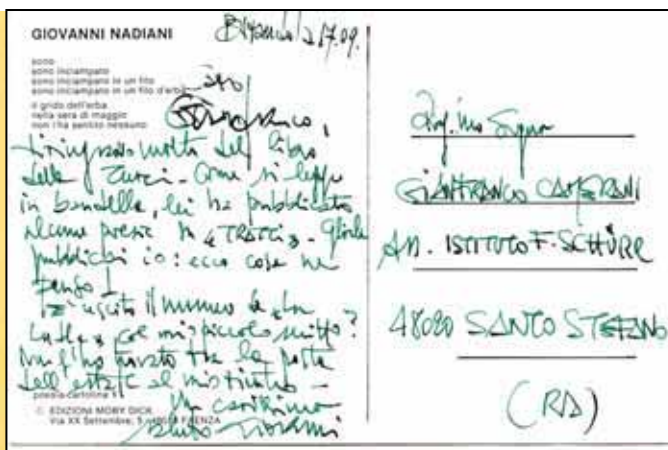 GIOVANNI NADIANI
sono
sono inciampato
sono inciampato in un filo
sono inciampato in un filo d'erba
il grido dell'erba
nella sera di maggio
non l'ha sentito nessuno
Caro
Gianfranco,
ti ringrazio molto del libro
della Turci - Come si legge
in bandella, lei ha pubblicato
alcune poesie in "TRATTI" - Gliele
pubblicai io: ecco cosa ne
penso!
È uscito il numero de "la
Ludla" col mio piccolo scritto?
Non l'ho trovato tra la posta
dell'estate al mio rientro -
Un carissimo
saluto Giovanni
poesia-cartolina
© EDIZIONI MOBY DICK
Via XX Settembre, 5 - 48018 FAENZA
Signor
GIANFRANCO CAMERANI
ISTITUTO F. SCHÜRR
48020 SANTO STEFANO
(RA)